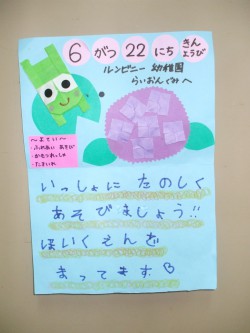 6 がつ 22 にち きん
ようび
ルンビニー 幼稚園
らいおんぐみへ
～よてい～
・ふれあい あそび
・かもつれっしゃ
・たまいれ
いっしょに たのしく
あそびましょう!!
ほいくえんで
まってます